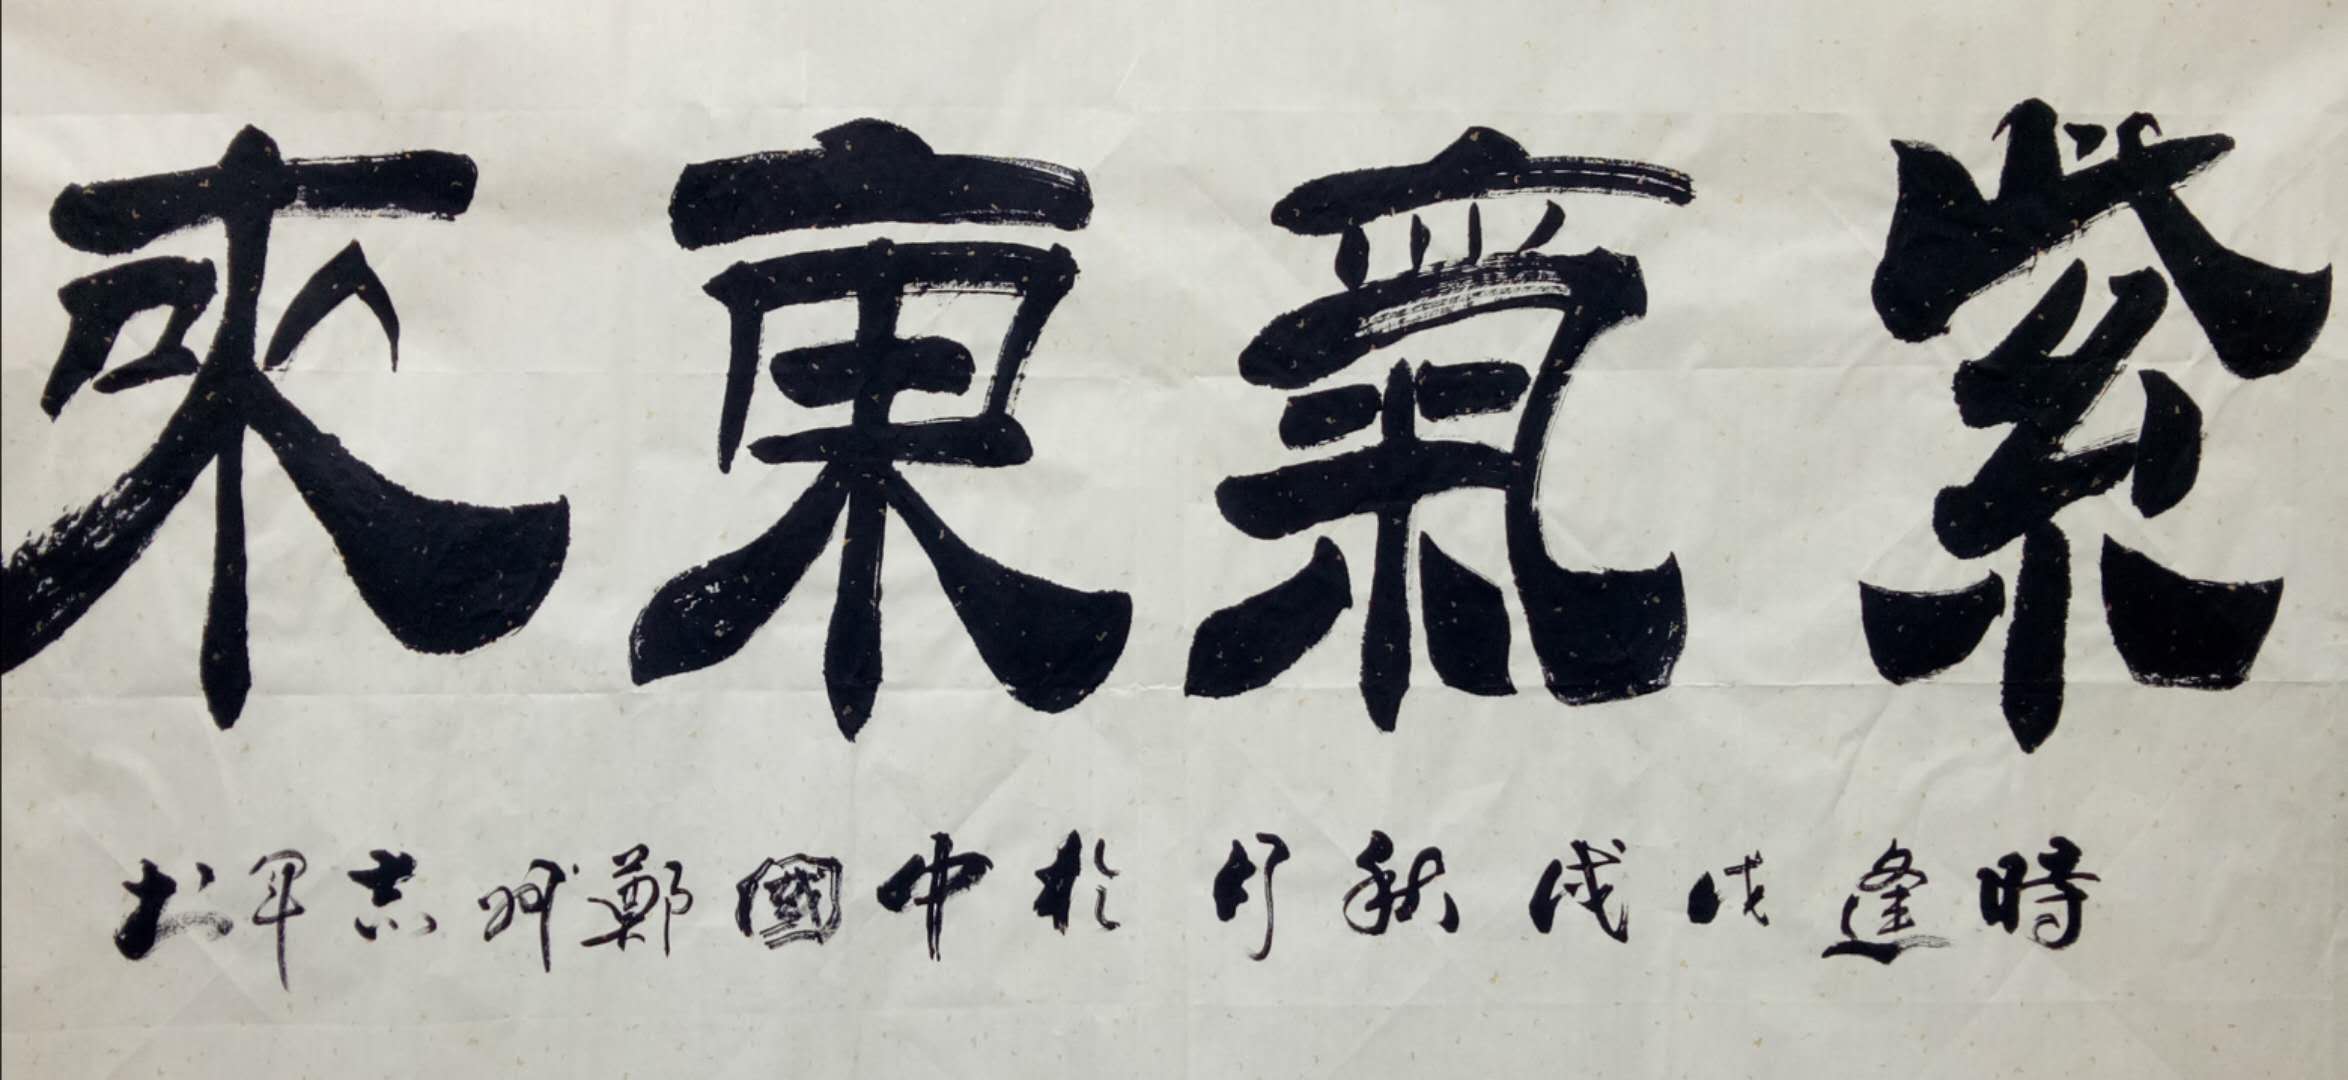 紫氣東來
時逢戊戌秋月於中國鄭州志軍書